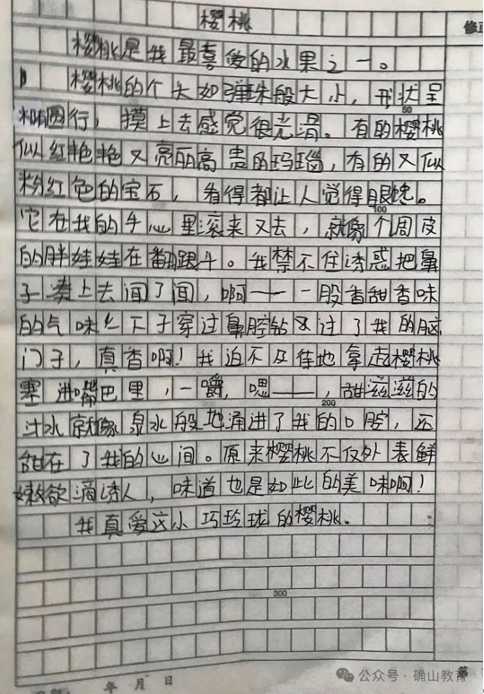 樱桃
修正
樱桃是我最喜爱的水果之一。
樱桃的个头如弹珠般大小，形状呈
椭圆形，摸上去感觉很光滑。有的樱桃
似红艳艳又亮丽高贵的玛瑙，有的又似
粉红色的宝石，看得都让人觉得眼馋。
100
它在我的手心里滚来又去，就像个周皮
的胖娃娃在翻跟斗。我禁不住诱惑把鼻
子凑上去闻了闻，啊——一股香甜香味
的气味一下子穿过鼻腔钻过了我的脑
门子，真香啊！我迫不及待地拿起樱桃
塞进嘴巴里，一嚼，嗯——，甜滋滋的
200
汁水就像泉水般地涌进了我的口腔，还
甜在了我的心间。原来樱桃不仅外表鲜
嫩欲滴诱人，味道也是如此的美味啊！
我真爱这小巧玲珑的樱桃。
300
年 月 日
公众号·确山教育
第